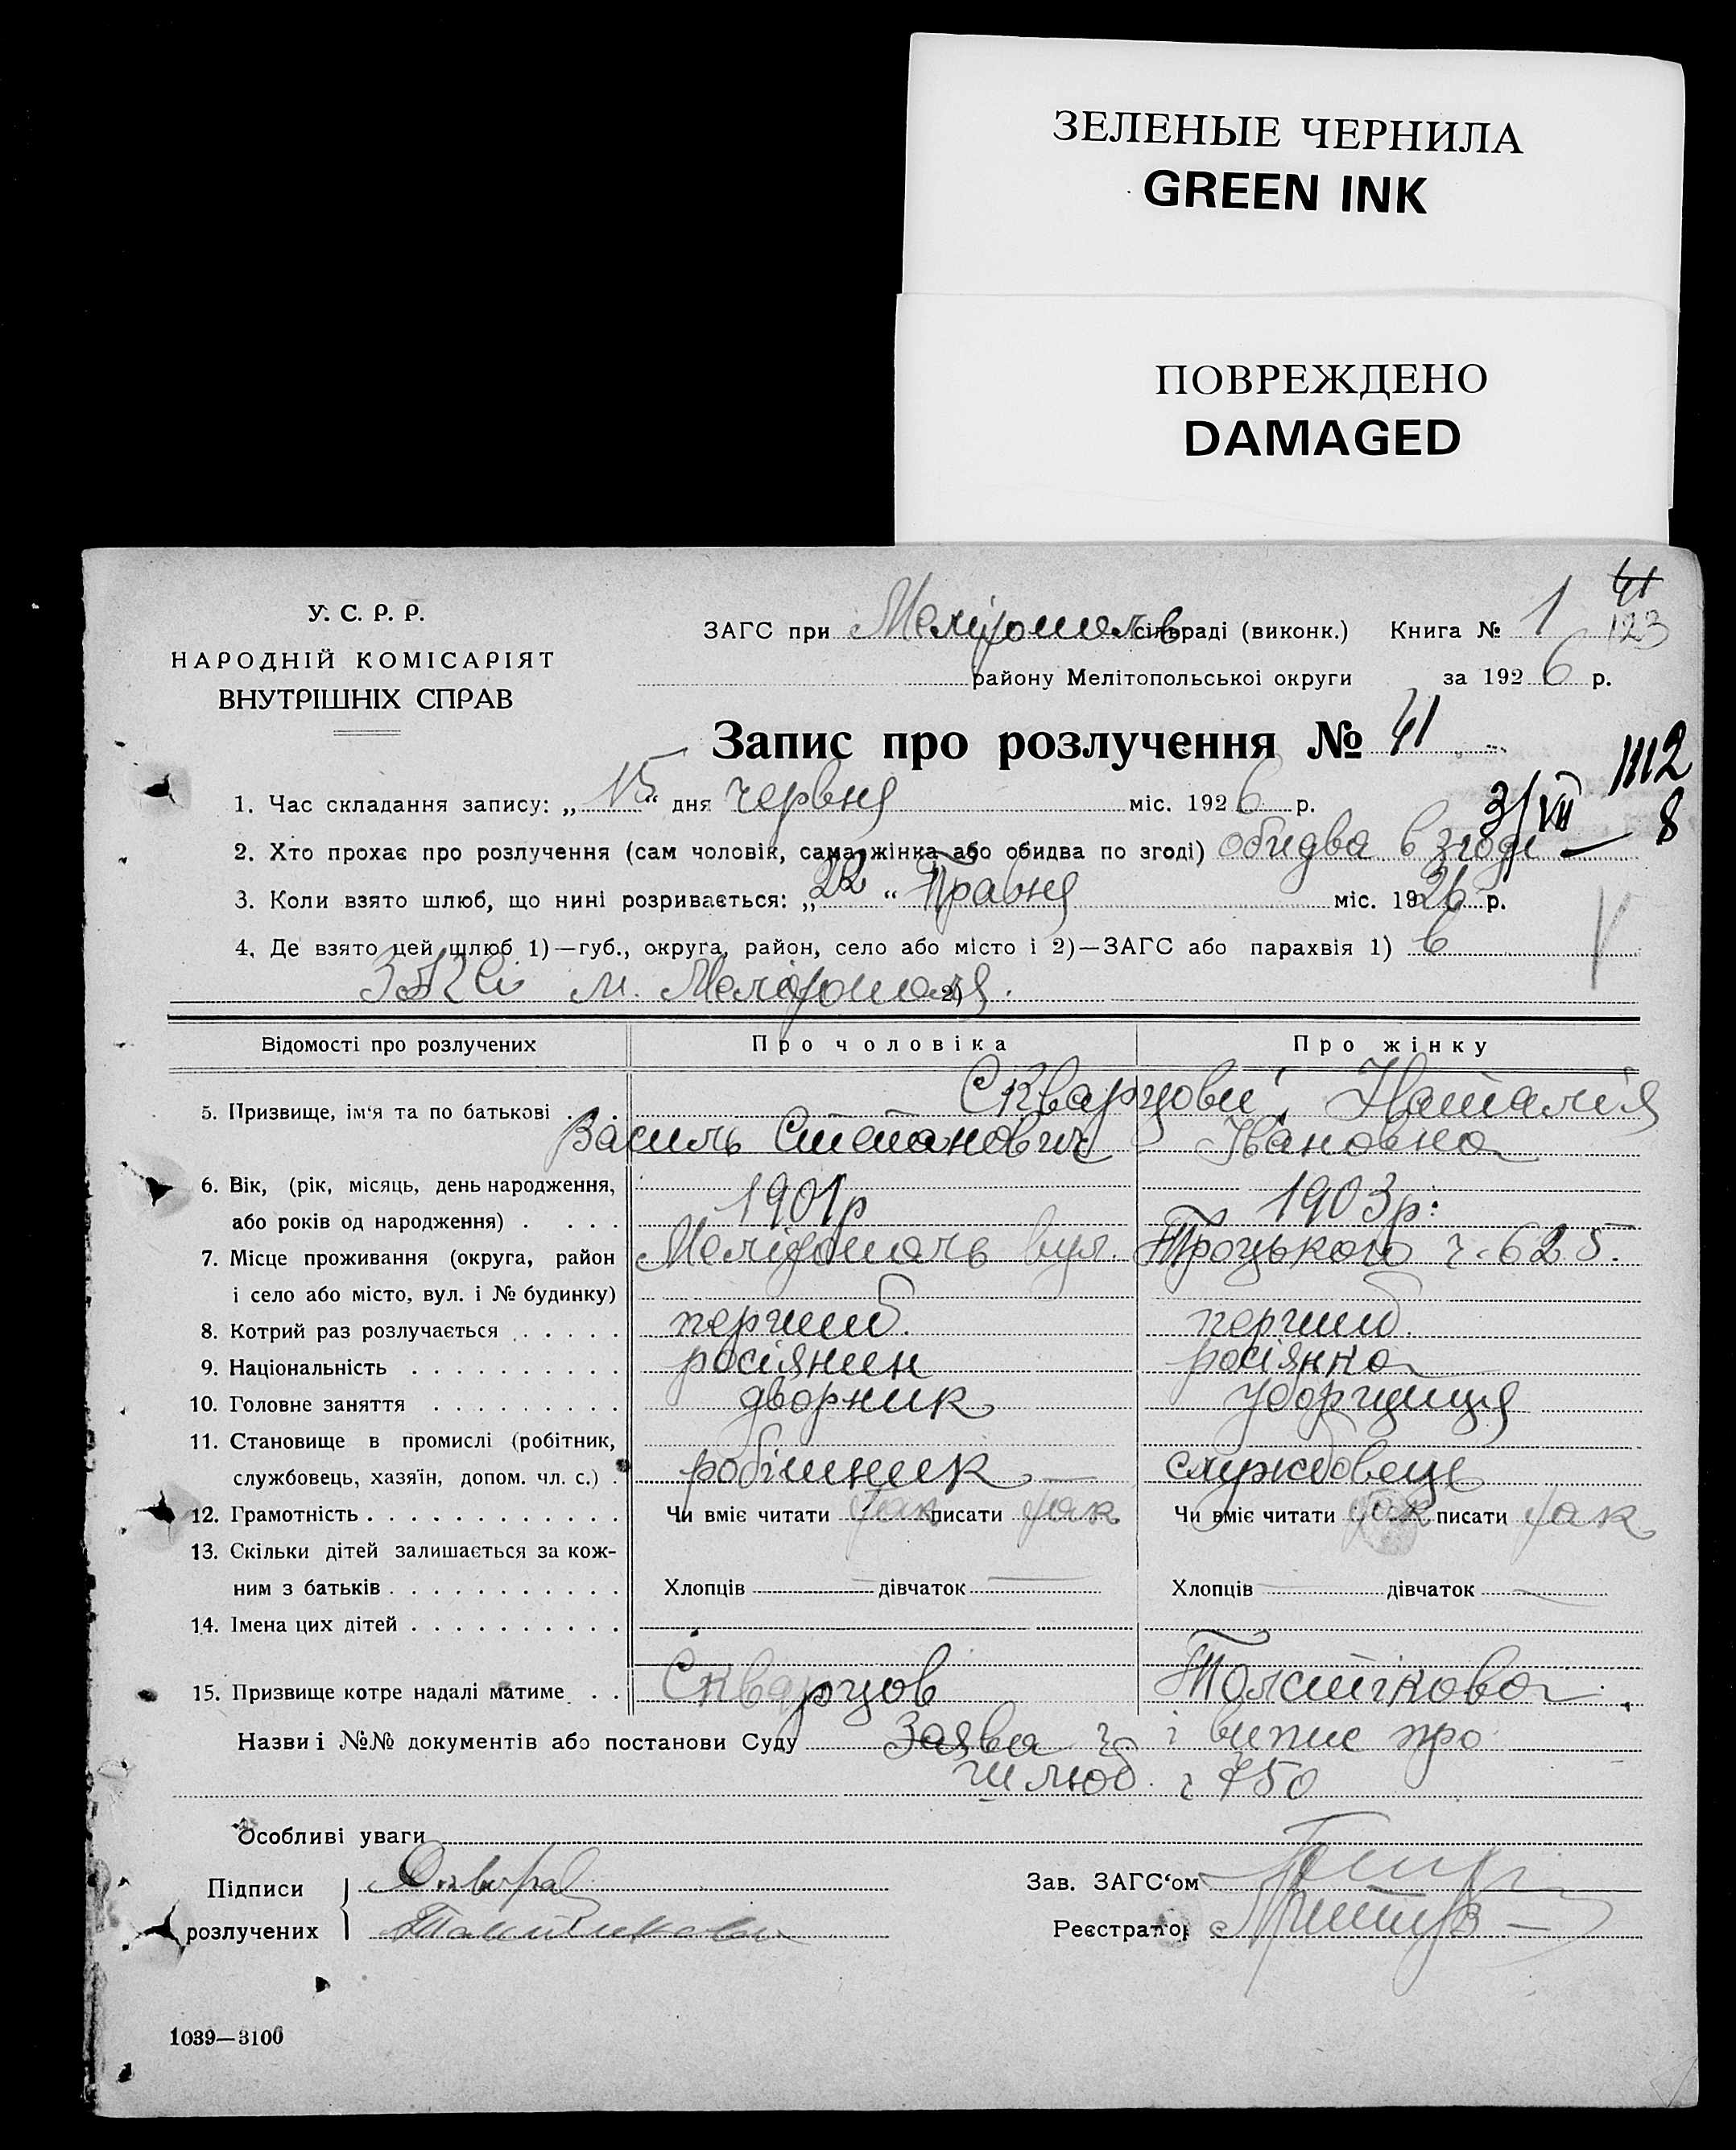 ЗЕЛЕНЫЕ ЧЕРНИЛА
GREEN INK
ПОВРЕЖДЕНО
DAMAGED
У. С. Р. Р.
НАРОДНІЙ КОМІСАРІЯТ
ВНУТРІШНІХ СПРАВ
41
123
ЗАГС при Мелітополь сільраді (виконк.) Книга № 1
району Мелітопольської округи за 1926 р.
Запис про розлучення № 41
1112
8
3/VII
1. Час складання запису: „15“ дня червня міс. 1926 р.
2. Хто прохає про розлучення (сам чоловік, сама жінка або обидва по згоді) обидва в згоді
3. Коли взято шлюб, що нині розривається: „22“ Травня міс. 1926 р.
4. Де взято цей шлюб 1)—губ., округа, район, село або місто і 2)—ЗАГС або парахвія 1) в
м. Мелітополя 2)
Відомості про розлучених Про чоловіка Про жінку
5. Призвище, ім'я та по батькові . . . Скварцови Наталія
Василь Степанович Івановна
6. Вік, (рік, місяць, день народження, 1901р 1903р.
або років од народження) . . . .
7. Місце проживання (округа, район Мелітополь вул. Троцького ч. 625.
і село або місто, вул. і № будинку)
8. Котрий раз розлучається . . . . . перший. перший.
9. Національність . . . . . . . . . . росіянин росіянка
10. Головне заняття . . . . . . . . . дворник уборщиця
11. Становище в промислі (робітник,
службовець, хазяїн, допом. чл. с.) . робітник службовець
12. Грамотність . . . . . . . . . . . . Чи вміє читати так писати так Чи вміє читати так писати так
13. Скільки дітей залишається за кож-
ним з батьків . . . . . . . . . . . Хлопців — дівчаток — Хлопців — дівчаток —
14. Імена цих дітей . . . . . . . . . .
15. Призвище котре надалі матиме . . Скварцов Толстікова
Назви і №№ документів або постанови Суду Заява і випис про
шлюб. ч 750
Особливі уваги
Підписи
розлучених
Зав. ЗАГС‘ом
Реєстратор
1039—3100